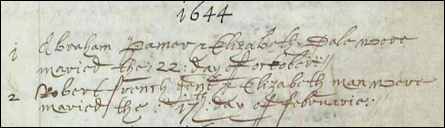 1644
1 Abraham Pamar & Elizabeth Pale were
maried the 22: day of october
2 Robert french gent & Elizabeth man were
maried the 17 day of februarie